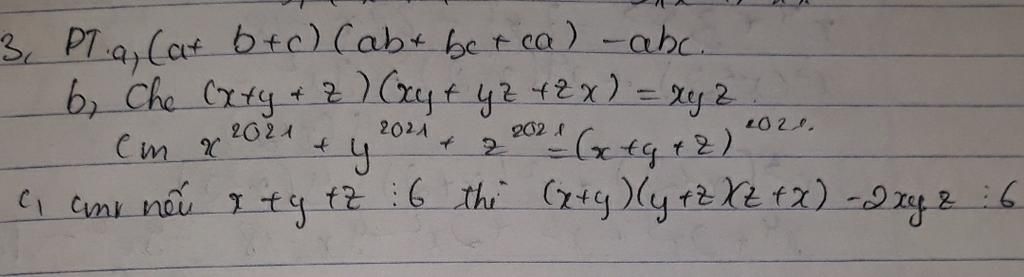 3, PT.a, (a+ b+c) (ab+ bc + ca) - abc.
b, Cho (x+y + z) (xy + yz + zx) = xyz.
Cm x^2021 + y^2021 + z^2021 = (x+y+z)^2021.
c, cmr nếu x + y + z ⋮ 6 thì (x+y)(y+z)(z+x) - 2xyz ⋮ 6